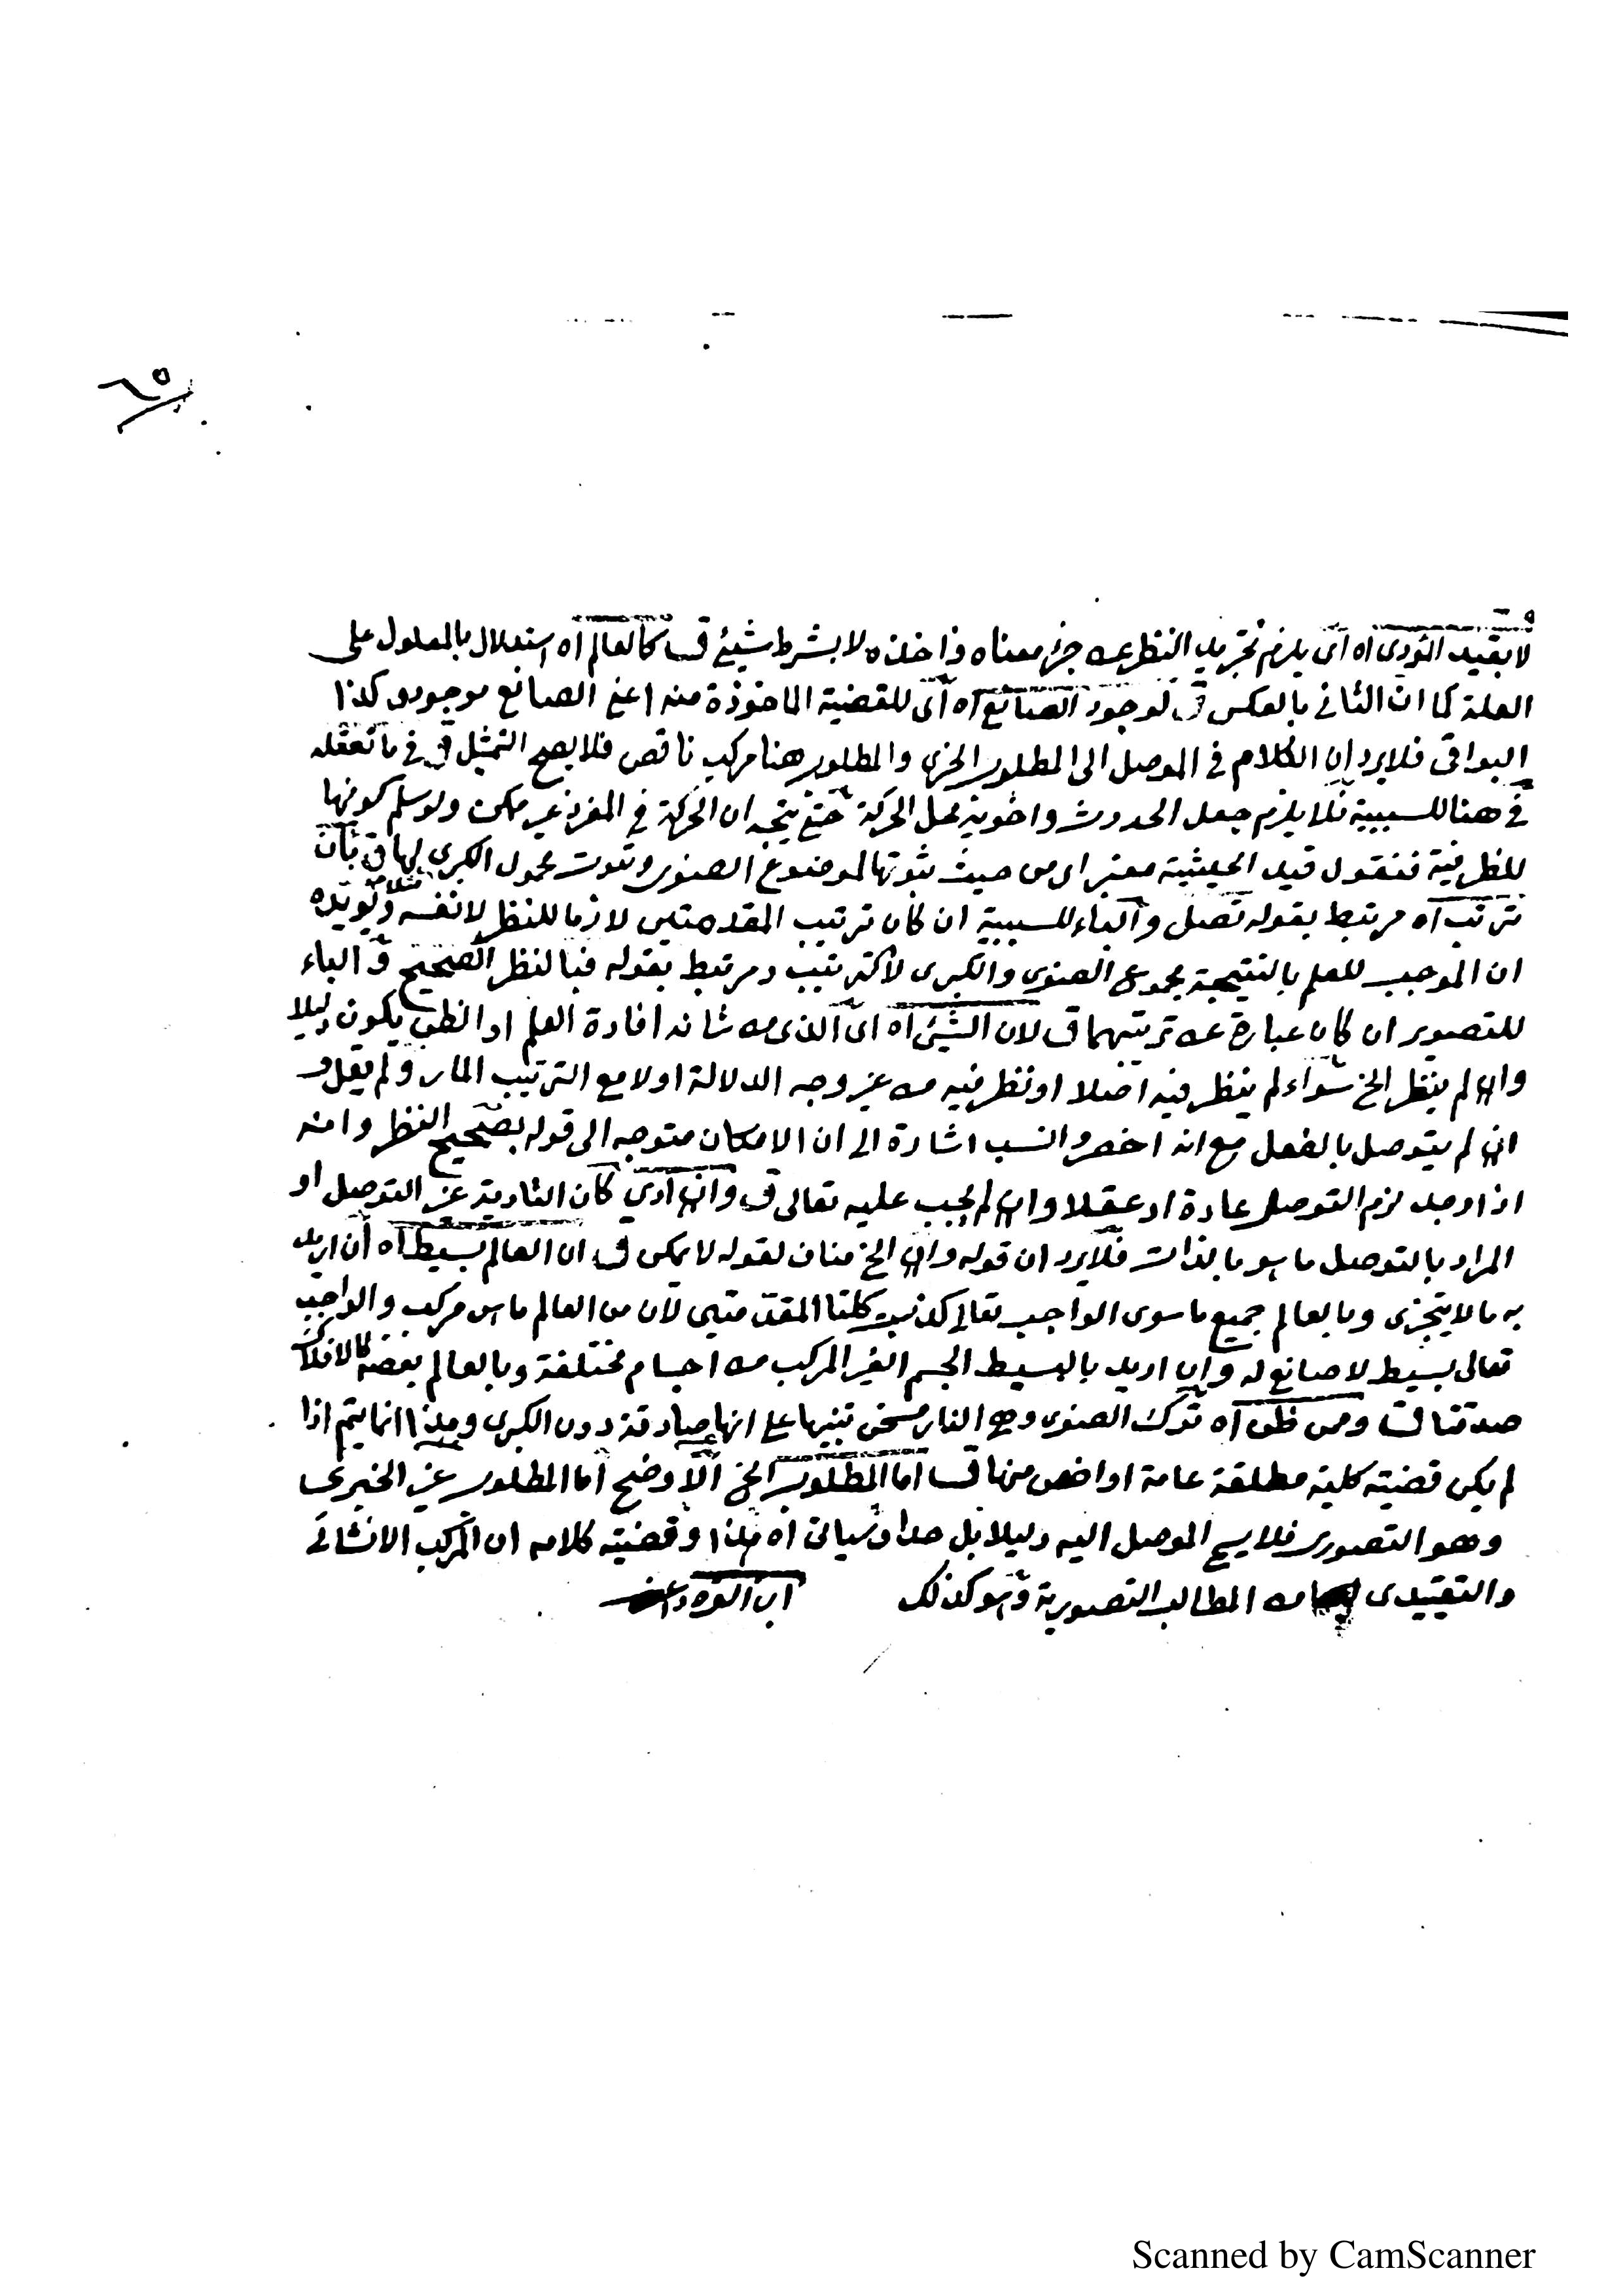 ٦٥
لا بقيد المؤدى اه اى يلزم تجريد النظر عن جزء معناه واخذه لا بشرط شيئ ق كالعالم اه استدلال بالمعلول على
العلة كما ان الثانى بالعكس ق لوجود الصانع اه اى للقضية الماخوذة منه اعنى الصانع موجود وكذا
البواقى فلا يرد ان الكلام فى الموصل الى المطلوب الخبرى والمطلوب هنا مركب ناقص فلا يصح التمثيل ق فى ما تعقله
فى هنا للسببية فلا يلزم جعل الحدوث واخويه محل الحركة حتى يتجه ان الحركة فى المفرد غير ممكن ولو سلم كونها
للظرفية فنقول قيد الحيثية معتبر اى من حيث ثبوتها لموضوع الصغرى وثبوت محمول الكبرى لها ق بان
ترتب اه مرتبط بقوله تصل والباء للسببية ان كان ترتيب المقدمتين لازما للنظر لا نفسه ويؤيده
ان الموجب للعلم بالنتيجة مجموع الصغرى والكبرى لا الترتيب ومرتبط بقوله فبالنظر الصحيح والباء
للتصوير ان كان عبارة عن ترتيبهما ق لان الشيئ اه اى الذى من شانه افادة العلم او الظن يكون دليلا
وان لم ينظر الخ سواء لم ينظر فيه اصلا او نظر فيه من غير وجه الدلالة او لا مع الترتيب المار ولم يقل و
ان لم يتوصل بالفعل مع انه اخصر وانسب اشارة الى ان الامكان متوجه الى قوله بصحيح النظر وانه
اذا وجد لزم التوصل عادة او عقلا وان لم يجب عليه تعالى ق وان ادى كان التادية غير التوصل او
المراد بالتوصل ما هو بالذات فلا يرد ان قوله وان الخ مناف لقوله لا يمكن ق ان العالم بسيط اه ان اريد
به ما لا يتجزى وبالعالم جميع ما سوى الواجب تعالى كذبت كلتا المقدمتين لان من العالم ما هو مركب والواجب
تعالى بسيط لا صانع له وان اريد بالبسيط الجسم الغير المركب من اجسام مختلفة وبالعالم بعضه كالافلاك
صدقتا ق ومن ظن اه ترك الصغرى وهى النار مسخن تنبيها على انها صادقة دون الكبرى وهذا انما يتم اذا
لم يكن قضية كلية مطلقة عامة او اخص منها ق اما المطلوب الخ الاوضح اما المطلوب غير الخبرى
وهو التصورى فلا يسمى الموصل اليه دليلا بل حدا وسياتى اه هذا وقضية كلامه ان المركب الانشائى
والتقييدى من المطالب التصورية وهو كذلك ابن القره داغى
Scanned by CamScanner